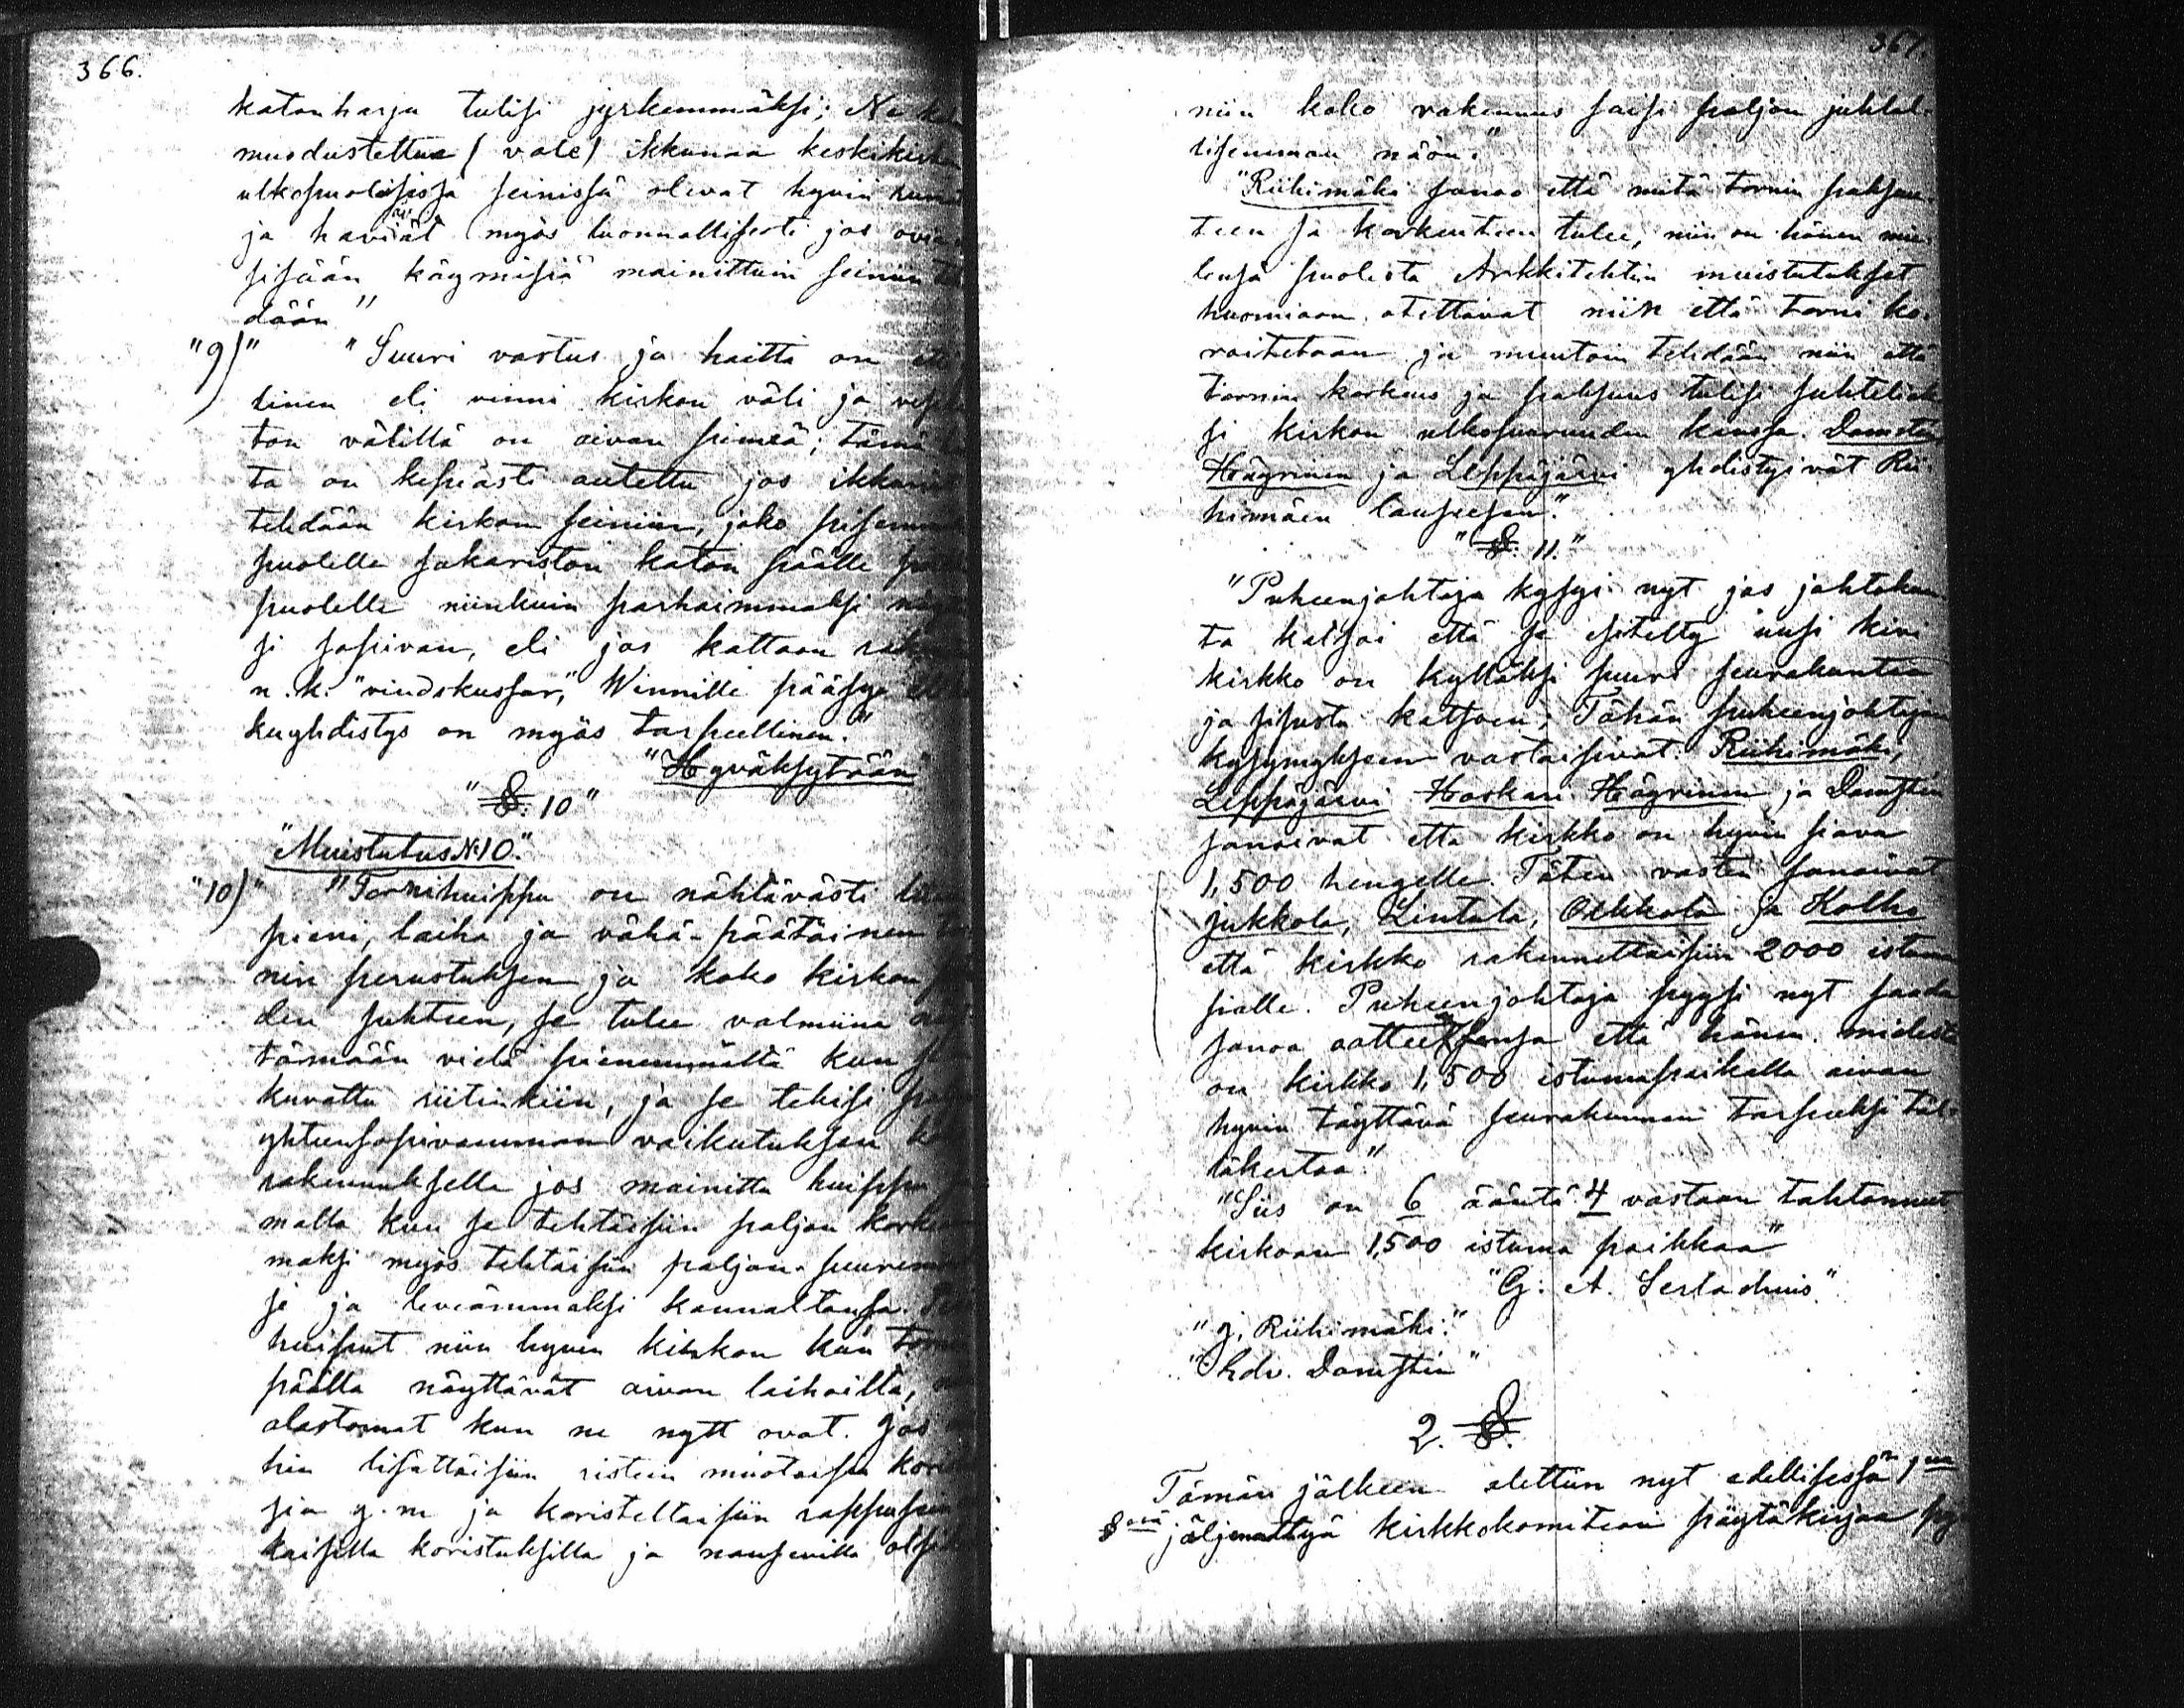 366.
katonharja tulisi jyrkemmäksi; Ne
muodustettua (vale) ikkunaa
ulkopuolisissa seinissä olevat hyvin
ja häviävät myös luonnollisesti jos
sisään käymisiä mainittuin seiniin
dään"
"9)" "Suuri vastus ja haitta on
linen eli vinni kirkon väli ja
ton välillä on aivan pimeä; tämä
ta on kepiästi autettu jos
tehdään kirkon seiniin, joko
puolelle sakariston katon päälle
puolelle niinkuin parhaimmaksi
si sopivan, eli jos kattoon
n.k. "vindskussar", Winnille pääsy
kuyhdistys on myös tarpeellinen."
"Hyväksytään"
"§. 10"
"Muistutus No 10."
"10)" "Tornihuippu on nähtävästi
pieni, laiha ja vähä-päätäinen
nin perustuksen ja koko kirkon
den suhteen, se tulee valmiina
tämään vielä pienemmältä kun
kuvattu riitinkiin, ja se tekisi
yhteensopivamman vaikutuksen
rakennuksella jos mainittu huippu
malla kun se tehtäisiin paljon
maksi myös tehtäisiin paljon
si ja leveämmäksi kannaltansa.
huiput niin hyvin kirkon kun
päällä näyttävät aivan laihoilta,
alastomat kun ne nytt ovat. Jos
hin lisättäisiin ristein muotoisia
sia y.m ja koristeltaisiin
kaisella koristuksilla ja nousevilla
367.
niin koko rakennus saisi paljon juhlal-
lisemman näön."
"Riihimäki sanoo että mitä tornin paksuu-
teen ja korkeuteen tulee, niin on hänen mie-
lensä puolesta Arkkitehtin muistutukset
huomioon otettavat niin että torni ko-
roitetaan ja muutoin tehdään niin että
tornin korkeus ja paksuus tulisi
si kirkon ulkosuuruuden kanssa. Damstén
Häyrinen ja Leppäjärvi yhdistyivät Rii-
himäen lauseesen."
"§. 11."
"Puheenjohtaja kysyi nyt jos johtokun-
ta katsoi että se esitelty uusi kivi
kirkko on kylläksi suuri seurakuntaa
ja sisusta katsoen; Tähän puheenjohtajan
kysymykseen vastaisivat: Riihimäki,
Leppäjärvi Haskari Häyrinen ja Damstén
sanoivat etta kirkko on hyvin siava
1,500 hengelle. Täten vasten sanoivat
jukkola, Lintula, Orkkola ja Kolho
että kirkko rakennettaisiin 2000 istuma
sialle. Puheenjohtaja pyysi nyt saada
sanoa aatteensa että hänen mielestä
on kirkko 1,500 istumapaikalla aivan
hyvin täyttävä seurakunnan tarpeeksi täl-
läkertaa."
"Siis on 6 ääntä 4 vastaan tahtonneet
kirkoon 1,500 istuma paikkaa"
"G. A. Serlachius."
"J. Riihimäki."
"Edv. Damstén"
2. §.
Tämän jälkeen otettiin nyt edellisessä 1en
§ssä jäljennettyä kirkkokomitean pöytäkirjaa